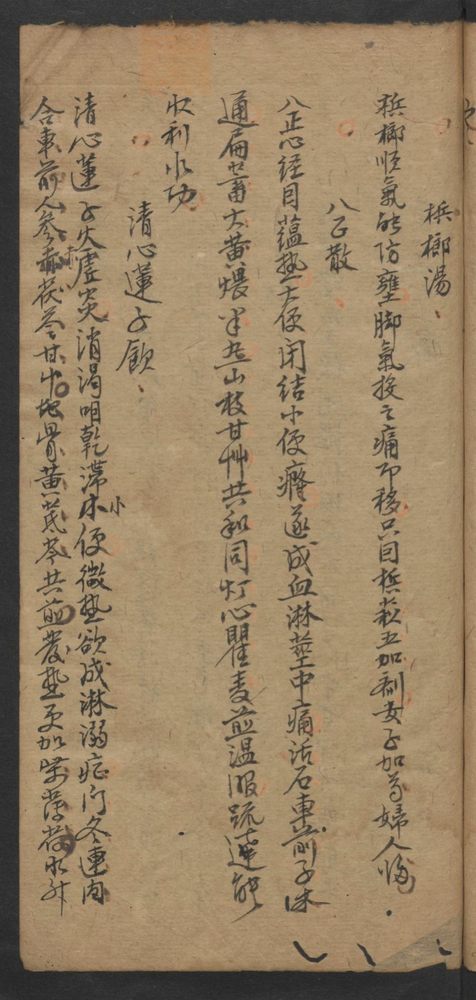 梹榔湯
梹榔順氣能防壅脚氣投之痛即移只因梹菽五加劑女子加芎婦人歸
八正散
八正心經因蘊热大便闭結小便癃遂成血淋莖中痛活石車前子木
通扁蓄大黄煨半無山枝甘艸共和同灯心瞿麦煎温服疏達能
收利水功
清心蓮子飲
清心蓮子火虚炎消渴咽乾滞小便微热欲成淋溺症门冬連肉
合車前人參赤茯苓甘艸地骨黄芪芩共煎發热更加柴薄荷水外